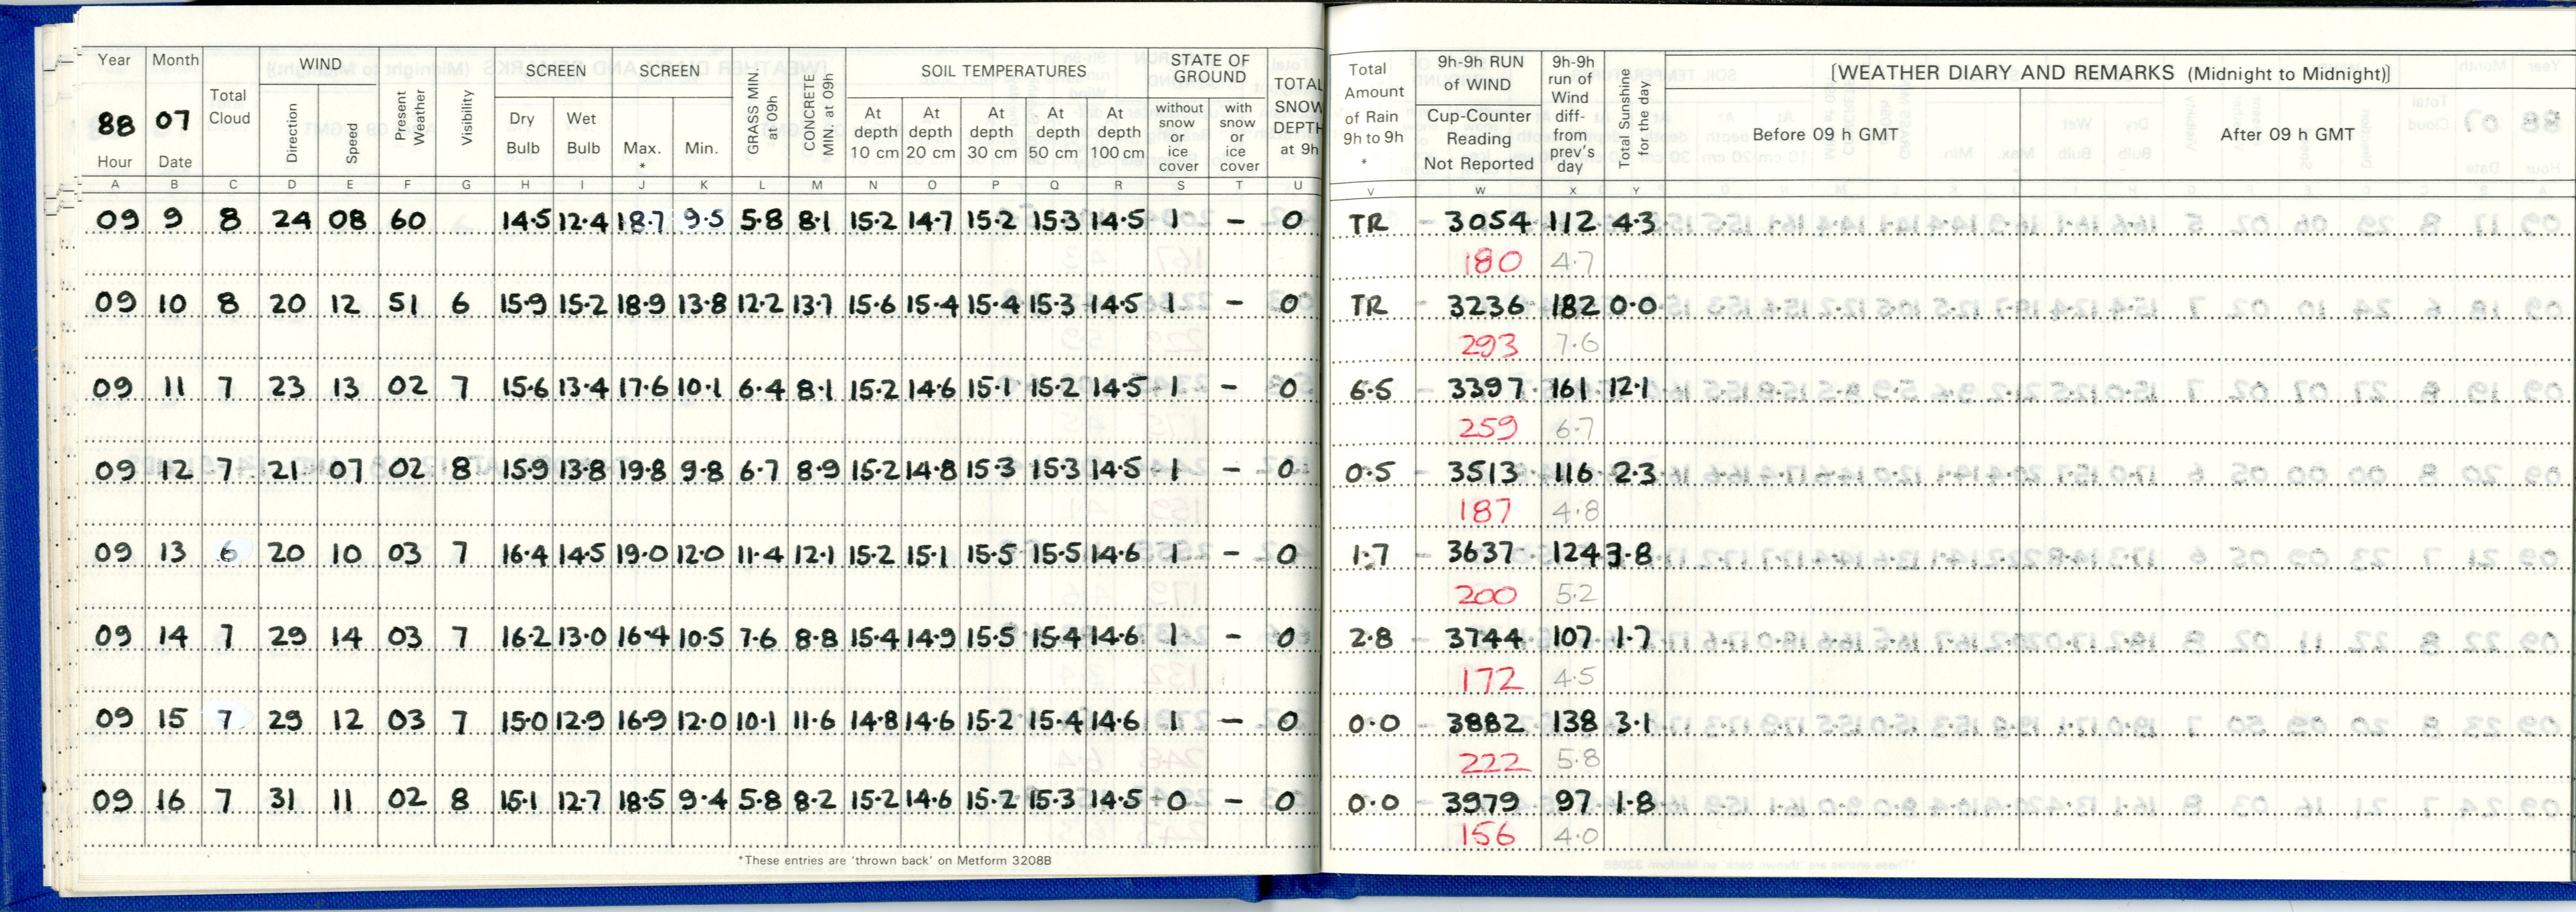 Year Month Total Cloud WIND Present Weather Visibility SCREEN SCREEN GRASS MIN. at 09h CONCRETE MIN. at 09h SOIL TEMPERATURES STATE OF GROUND TOTAL SNOW DEPTH at 9h
88 07 Direction Speed Dry Bulb Wet Bulb Max. * Min. At depth 10 cm At depth 20 cm At depth 30 cm At depth 50 cm At depth 100 cm without snow or ice cover with snow or ice cover
Hour Date
A B C D E F G H I J K L M N O P Q R S T U
09 9 8 24 08 60 14.5 12.4 18.7 9.5 5.8 8.1 15.2 14.7 15.2 15.3 14.5 1 – 0
09 10 8 20 12 51 6 15.9 15.2 18.9 13.8 12.2 13.7 15.6 15.4 15.4 15.3 14.5 1 – 0
09 11 7 23 13 02 7 15.6 13.4 17.6 10.1 6.4 8.1 15.2 14.6 15.1 15.2 14.5 1 – 0
09 12 7 21 07 02 8 15.9 13.8 19.8 9.8 6.7 8.9 15.2 14.8 15.3 15.3 14.5 1 – 0
09 13 6 20 10 03 7 16.4 14.5 19.0 12.0 11.4 12.1 15.2 15.1 15.5 15.5 14.6 1 – 0
09 14 7 29 14 03 7 16.2 13.0 16.4 10.5 7.6 8.8 15.4 14.9 15.5 15.4 14.6 1 – 0
09 15 7 29 12 03 7 15.0 12.9 16.9 12.0 10.1 11.6 14.8 14.6 15.2 15.4 14.6 1 – 0
09 16 7 31 11 02 8 15.1 12.7 18.5 9.4 5.8 8.2 15.2 14.6 15.2 15.3 14.5 0 – 0
*These entries are 'thrown back' on Metform 3208B
Total Amount of Rain 9h to 9h * 9h-9h RUN of WIND Cup-Counter Reading Not Reported 9h-9h run of Wind diff- from prev's day Total Sunshine for the day [WEATHER DIARY AND REMARKS (Midnight to Midnight)]
Before 09 h GMT After 09 h GMT
V W X Y
TR 3054 112 4.3
180 4.7
TR 3236 182 0.0
293 7.6
6.5 3397 161 12.1
259 6.7
0.5 3513 116 2.3
187 4.8
1.7 3637 124 3.8
200 5.2
2.8 3744 107 1.7
172 4.5
0.0 3882 138 3.1
222 5.8
0.0 3979 97 1.8
156 4.0